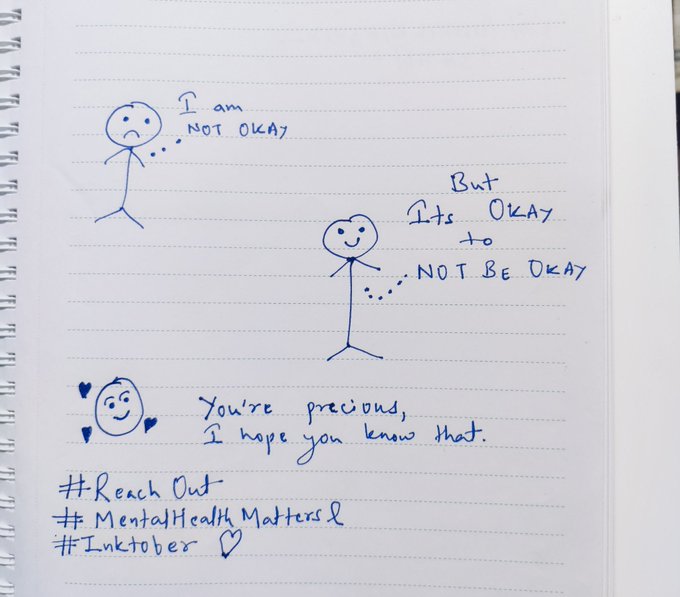 I am
NOT OKAY
But
Its OKAY
to
NOT BE OKAY
You're precious,
I hope you know that.
#Reach Out
#MentalHealthMatters
#Inktober